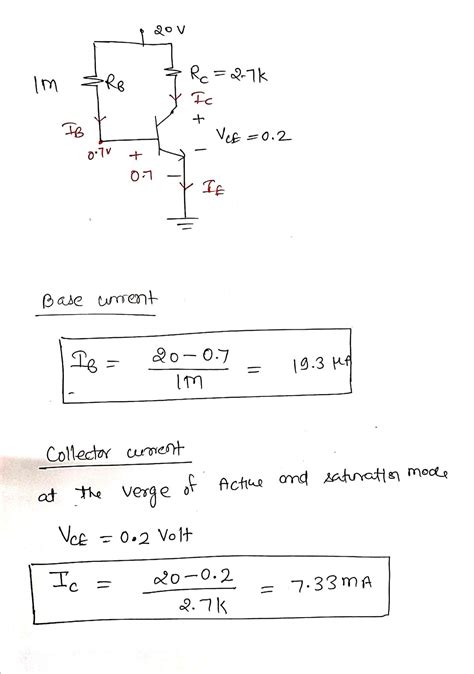 20 V
1M
RB
RC = 2.7k
IC
+
IB
VCE = 0.2
0.7V
+
−
0.7
−
IE
Base current
IB = 20 − 0.7 / 1M = 19.3 μA
Collector current
at the verge of Active and saturation mode
VCE = 0.2 Volt
Ic = 20 − 0.2 / 2.7K = 7.33 mA